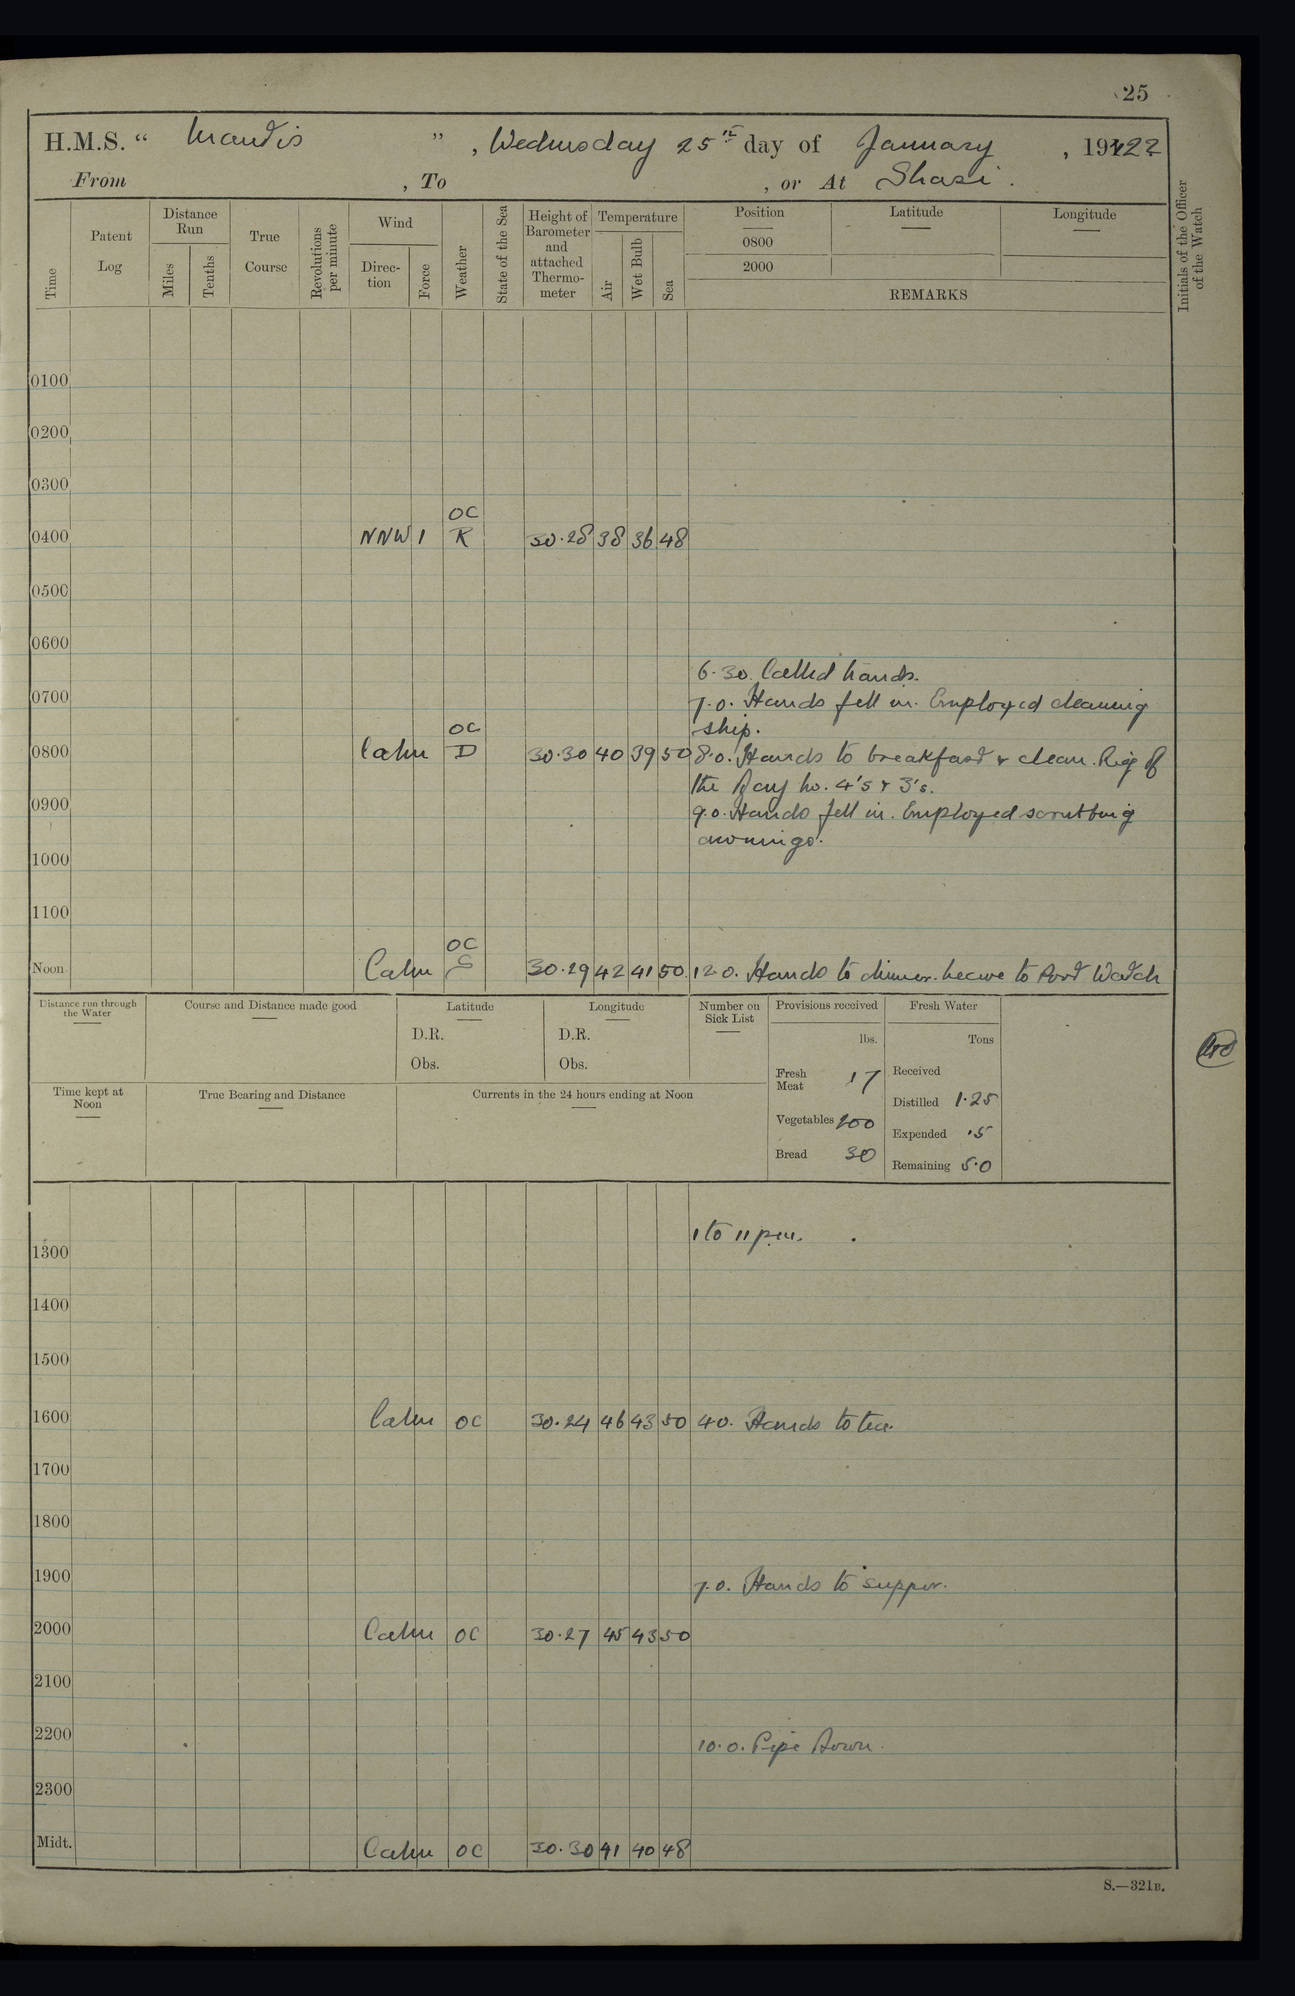 25
H.M.S. " Mantis ", Wednesday 25th day of January, 1922
From , To , or At Shasi.
Time
Patent Log
Distance Run
Miles
Tenths
True Course
Revolutions per minute
Wind
Direction
Force
Weather
State of the Sea
Height of Barometer and attached Thermometer
Temperature
Air
Wet Bulb
Sea
Position
0800
2000
Latitude
Longitude
REMARKS
Initials of the Officer of the Watch
0100
0200
0300
OC
0400 NNW 1 R 30.28 38 36 48
0500
0600
6.30. Called hands.
0700
7.0. Hands fell in. Employed cleaning
ship.
OC
0800 Calm D 30.30 40 39 50 8.0. Hands to breakfast & clean. Rig of
the Day No. 4's & 3's.
0900
9.0. Hands fell in. Employed scrubbing
awnings.
1000
1100
OC
Noon Calm 30.29 42 41 50 12.0. Hands to dinner. Leave to Port Watch
Distance run through the Water
Course and Distance made good
Latitude
D.R.
Obs.
Longitude
D.R.
Obs.
Number on Sick List
Provisions received
lbs.
Fresh Meat 17
Vegetables 100
Bread 30
Fresh Water
Tons
Received
Distilled 1.25
Expended .5
Remaining 5.0
Time kept at Noon
True Bearing and Distance
Currents in the 24 hours ending at Noon
1 to 11 pm.
1300
1400
1500
1600 Calm OC 30.24 46 43 50 4.0. Hands to tea.
1700
1800
1900
7.0. Hands to supper.
2000 Calm OC 30.27 45 43 50
2100
2200
10.0. Pipe Down.
2300
Midt. Calm OC 30.30 41 40 48
S.—321B.